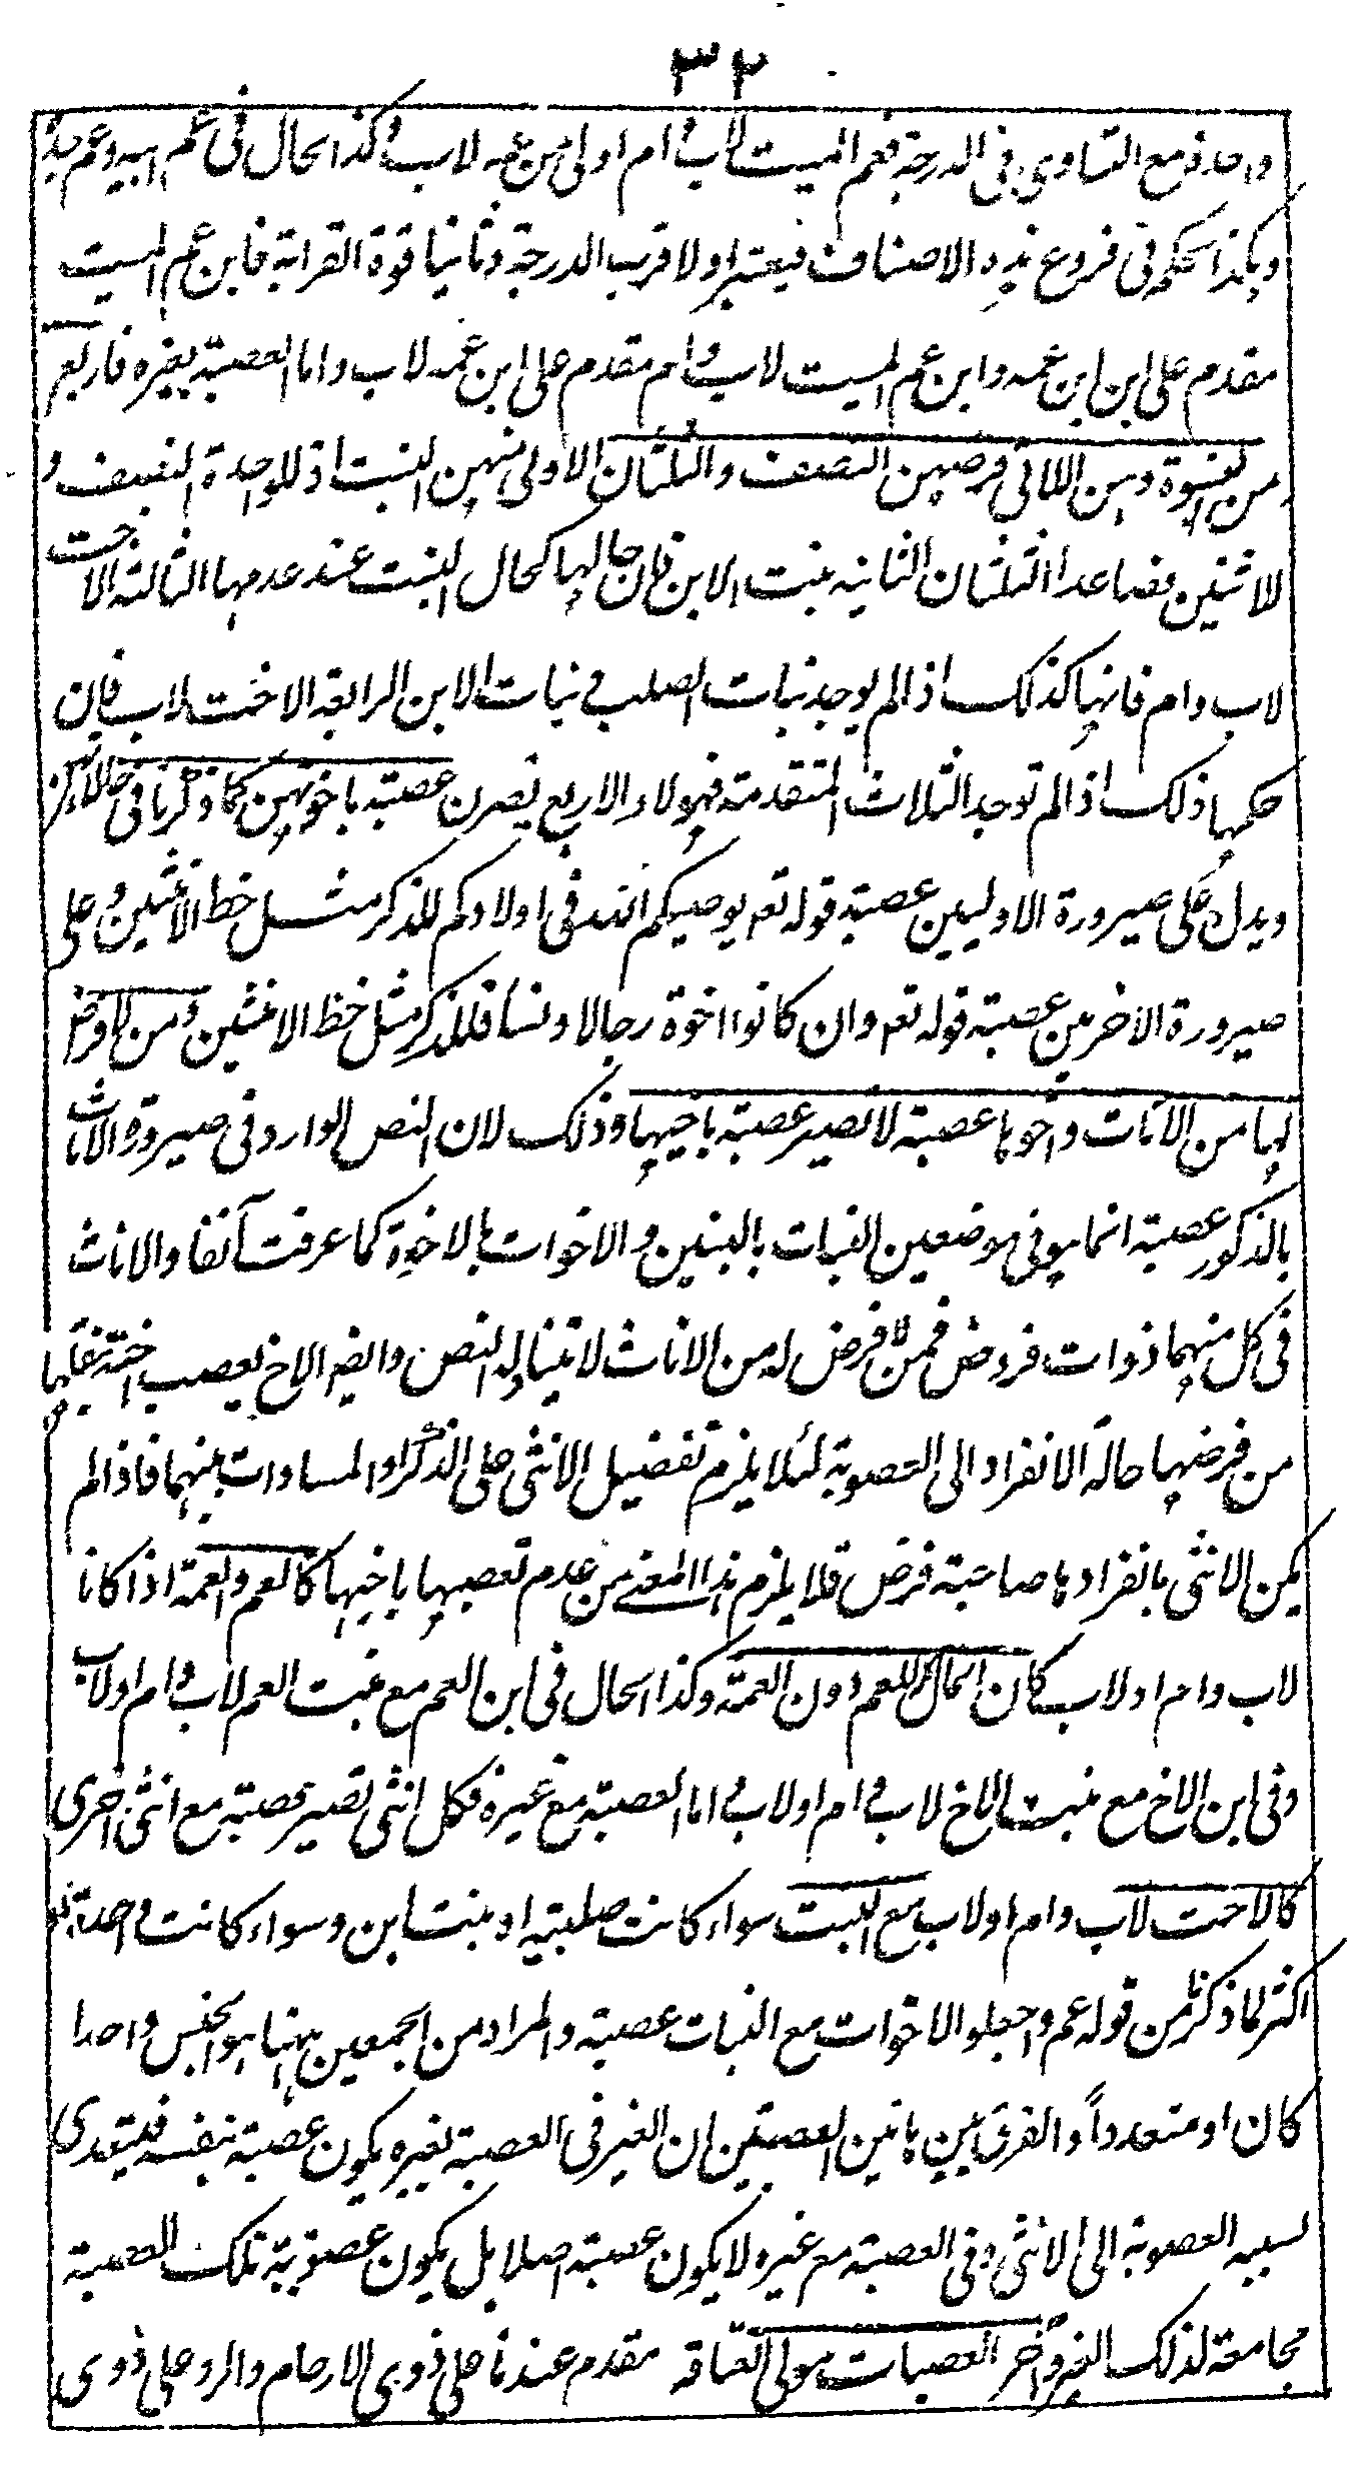 ٣٢
واحدة مع التساوى فى الدرجة فعم الميت لاب وام اولى من عمه لاب وكذا الحال فى عم ابيه وعم جده
وهكذا الحكم فى فروع هذه الاصناف فيعتبر اولا قرب الدرجة وثانيا قوة القرابة فابن عم الميت
مقدم على ابن ابن عمه وابن عم الميت لاب وام مقدم على ابن عمه لاب واما العصبة بغيره فاربع
من النسوة وهن اللاتى فرضهن النصف والثلثان الاولى منهن البنت اذ للواحدة النصف و
للاثنين فصاعدا الثلثان الثانيه بنت الابن فان حالها كحال البنت عند عدمها الثالثة الاخت
لاب وام فانها كذلك اذا لم يوجد بنات الصلب و بنات الابن الرابعة الاخت لاب فان
حكمها ذلك اذا لم توجد الثلاث المتقدمة فهؤلاء الاربع يصرن عصبة باخوتهن كما ذكرنا فى حالاتهن
ويدل على صيرورة الاوليين عصبة قوله تعه يوصيكم الله فى اولادكم للذكر مثل حظ الانثيين وعلى
صيرورة الاخريين عصبة قوله تعه وان كانوا اخوة رجالا ونسا فللذكر مثل حظ الانثيين ومن لا فرض
لها من الاناث واخوها عصبة لا تصير عصبة باخيها وذلك لان النص الوارد فى صيرورة الاناث
بالذكور عصبة انما هو فى موضعين البنات بالبنين والاخوات بالاخوة كما عرفت آنفا والاناث
فى كل منهما ذوات فروض فمن لا فرض له من الاناث لا يتناوله النص وايضا الاخ يعصب اخته بنقلها
من فرضها حالة الانفراد الى العصوبة لئلا يلزم تفضيل الانثى على الذكر او المساوات بينهما فاذا لم
يكن الانثى بانفرادها صاحبة فرض فلا يلزم هذا المعنى من عدم تعصبها باخيها كالعم والعمة اذا كانا
لاب وام او لاب كان المال للعم دون العمة وكذا الحال فى ابن العم مع بنت العم لاب وام او لاب
وفى ابن الاخ مع بنت الاخ لاب و ام او لاب و اما العصبة مع غيره فكل انثى تصير عصبة مع انثى اخرى
كالاخت لاب وام او لاب مع البنت سواء كانت صلبية او بنت ابن وسواء كانت واحدة او
اكثر لما ذكرنا من قوله عم واجعلو الاخوات مع البنات عصبة والمراد من الجمعين ههنا هو الجنس واحدا
كان او متعدداً والفرق بين هاتين العصبتين ان الغير فى العصبة بغيره يكون عصبة بنفسه فيتعدى
بسببه العصوبة الى الانثى وفى العصبة مع غيره لا يكون عصبة اصلا بل يكون عصوبة تلك العصبة
مجامعة لذلك الغير وآخر العصبات مولى العتاقه مقدم عندنا على ذوى الارحام والرد على ذوى